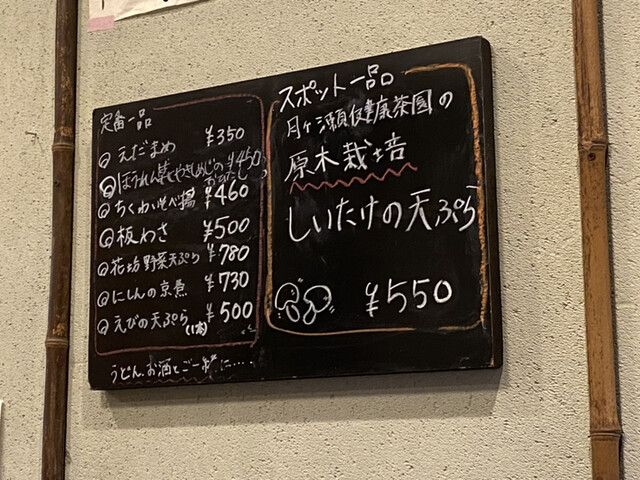 定番一品
えだまめ ¥350
ほうれん草とやきしめじの ¥450
おひたし
ちくわいそべ揚 ¥460
板わさ ¥500
花坊野菜天ぷら ¥780
にしんの京煮 ¥730
えびの天ぷら ¥500
うどん、お酒とご一緒に・・・・
スポット一品。
月ヶ瀬健康茶園の
原木栽培
しいたけの天ぷら
¥550